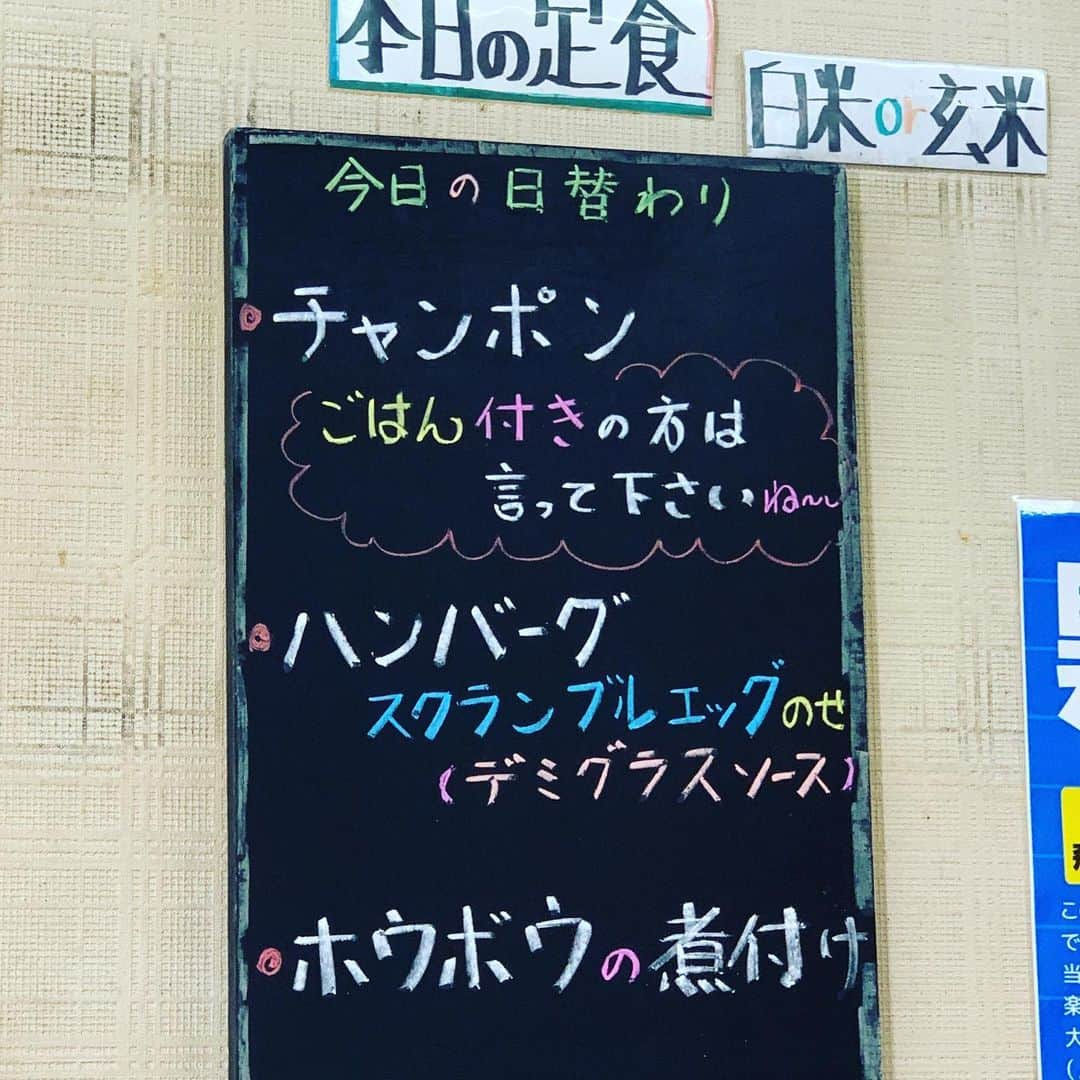 本日の定食
白米or玄米
今日の日替わり
チャンポン
ごはん付きの方は
言って下さいね～
ハンバーグ
スクランブルエッグのせ
(デミグラスソース)
ホウボウの煮付け